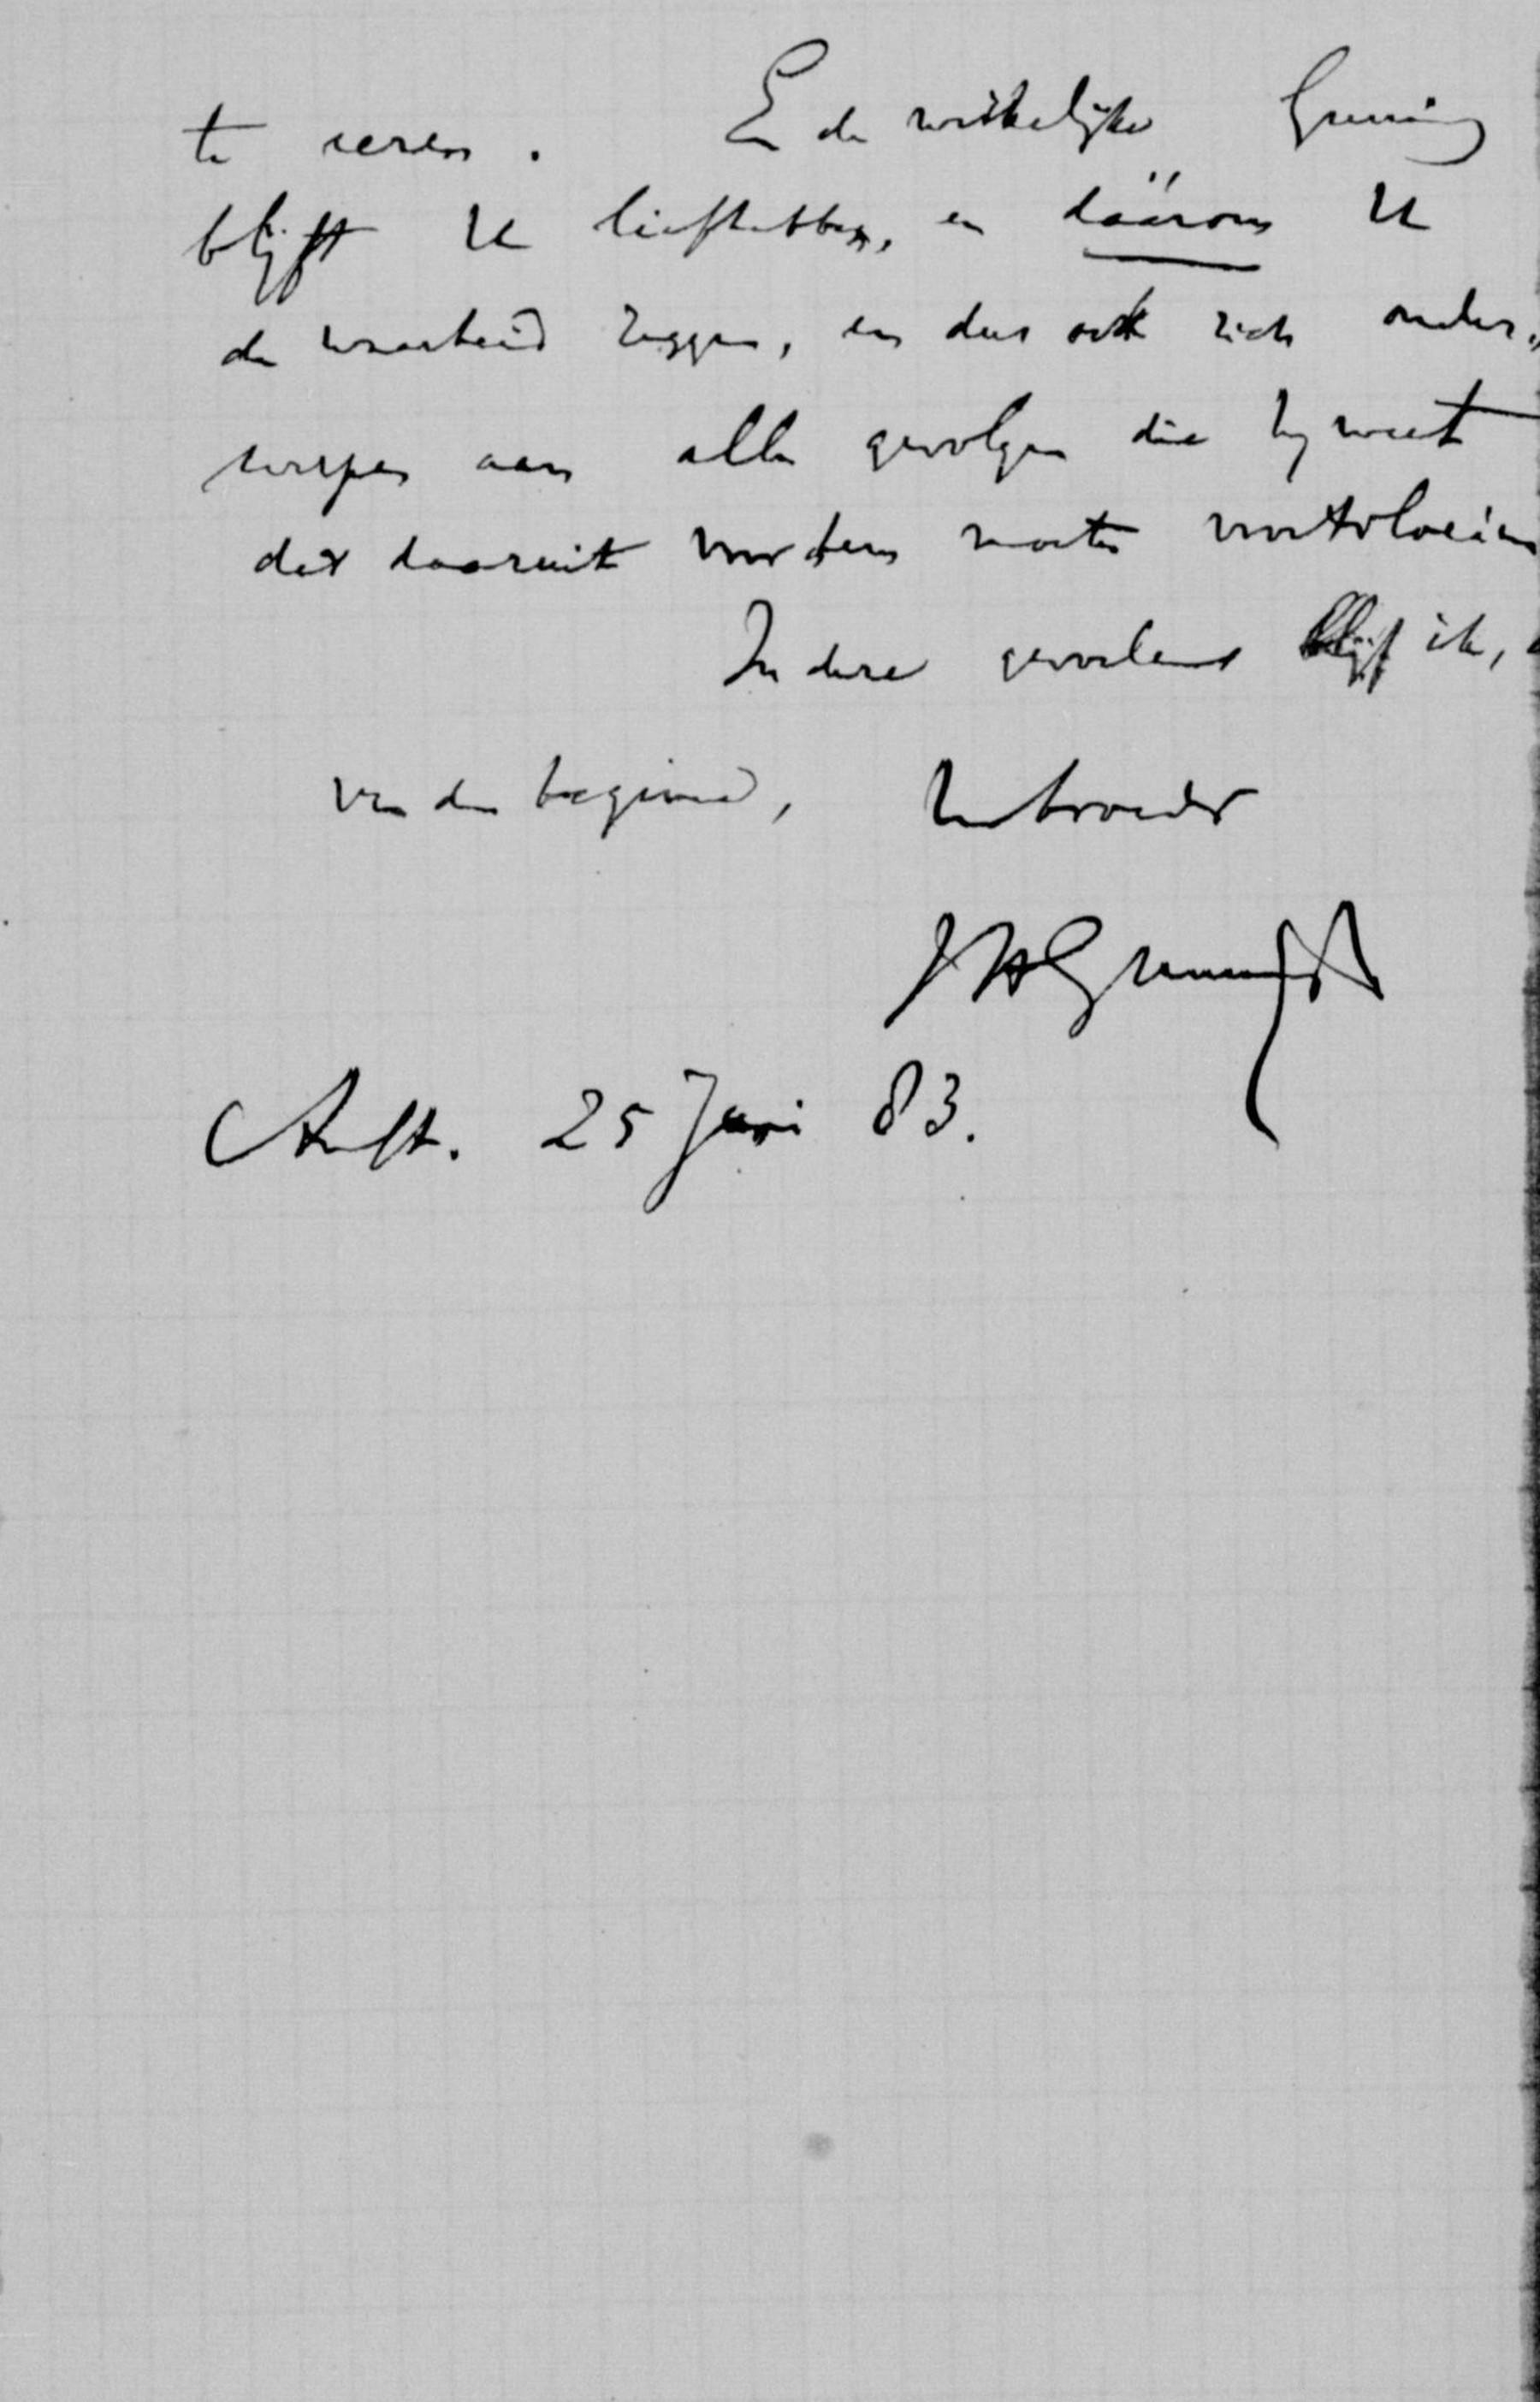 te eeren. En de werkelijke Gunning
blijft U liefhebben, en dáárom U
de waarheid zeggen, en dus ook zich onder„
werpen aan alle gevolgen die hij weet
dat daaruit voor hem moeten voortvloeien
In deze gevoelens blijf ik, a
van den beginne, Uw broeder
JHGunning JH
Amst. 25 Juni 83.